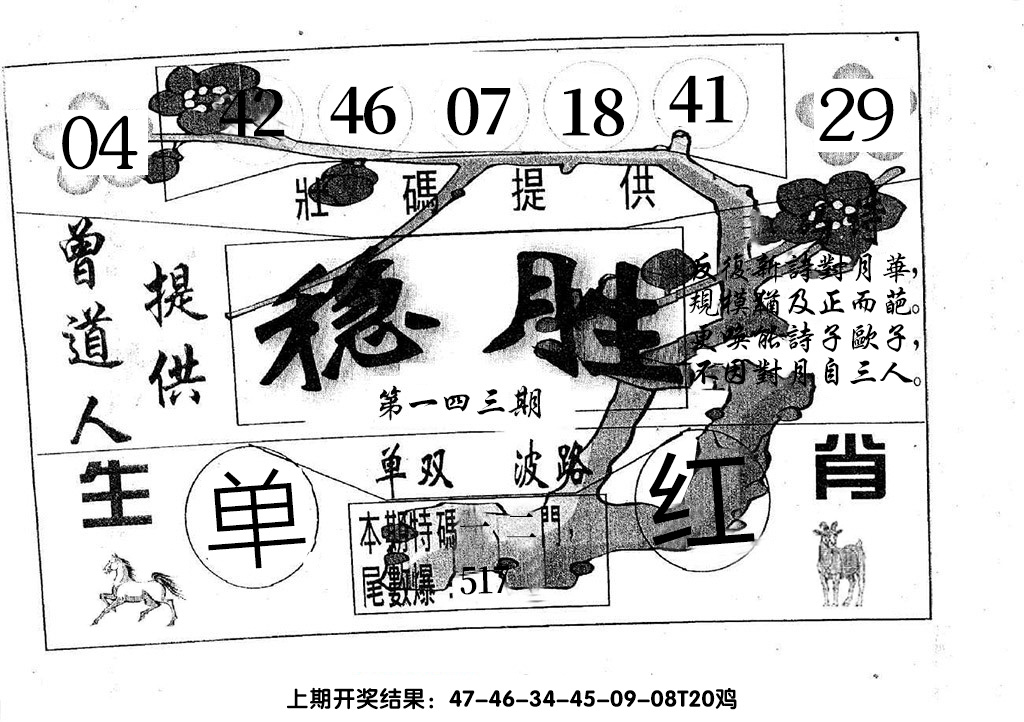 04 42 46 07 18 41 29
壯碼提供
曾道人
提供
稳胜
第一四三期
反復新詩對月華，
規模猶及正而葩。
更喚能詩子歐子，
不因對月自三人。
单双 波路
生
肖
单
红
本期特碼一、二門，
尾數爆：517
上期开奖结果：47-46-34-45-09-08T20鸡